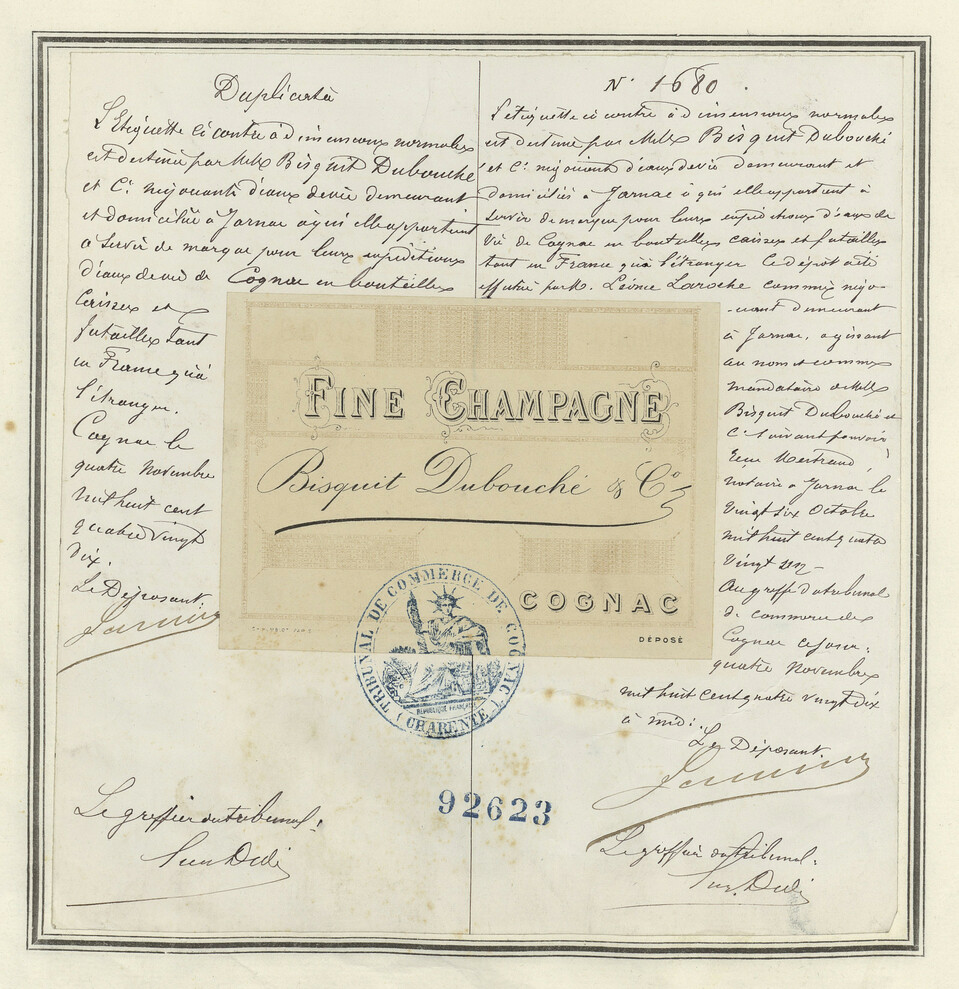 Duplicata
L'Etiquette ci contre à dimensions normales
est destinée par MM Bisquit Dubouché
et Cie négociants d'eaux de vie demeurant
et domiciliés à Jarnac à qui elle appartient
à servir de marque pour leurs expéditions
d'eaux de vie de Cognac en bouteilles
Caisses et
futailles tant
en France qu'à
l'étranger.
Cognac le
quatre Novembre
mil huit cent
quatre vingt
dix.
Le Déposant:
Le greffier du tribunal:
N° 1680
L'étiquette ci contre à dimensions normales
est destinée par MM Bisquit Dubouché
et Cie négociants d'eaux de vie demeurant et
domiciliés à Jarnac à qui elle appartient à
servir de marque pour leurs expéditions d'eaux de
vie de Cognac en bouteilles caisses et futailles
tant en France qu'à l'étranger Ce dépôt a été
effectué par M. Léonce Laroche commis négo-
-ciant demeurant
à Jarnac, agissant
au nom et comme
mandataire de MM
Bisquit Dubouché et
Cie suivant pouvoir
notaire à Jarnac le
vingt six Octobre
mil huit cent quatre
vingt dix -
Au greffe du tribunal
de commerce de
Cognac ce jour:
quatre Novembre
mil huit cent quatre vingt dix
à midi.
Le Déposant.
Le greffier du tribunal:
FINE CHAMPAGNE
Bisquit Dubouché & Co
COGNAC
DÉPOSÉ
TRIBUNAL DE COMMERCE DE COGNAC
RÉPUBLIQUE FRANÇAISE
(CHARENTE)
92623